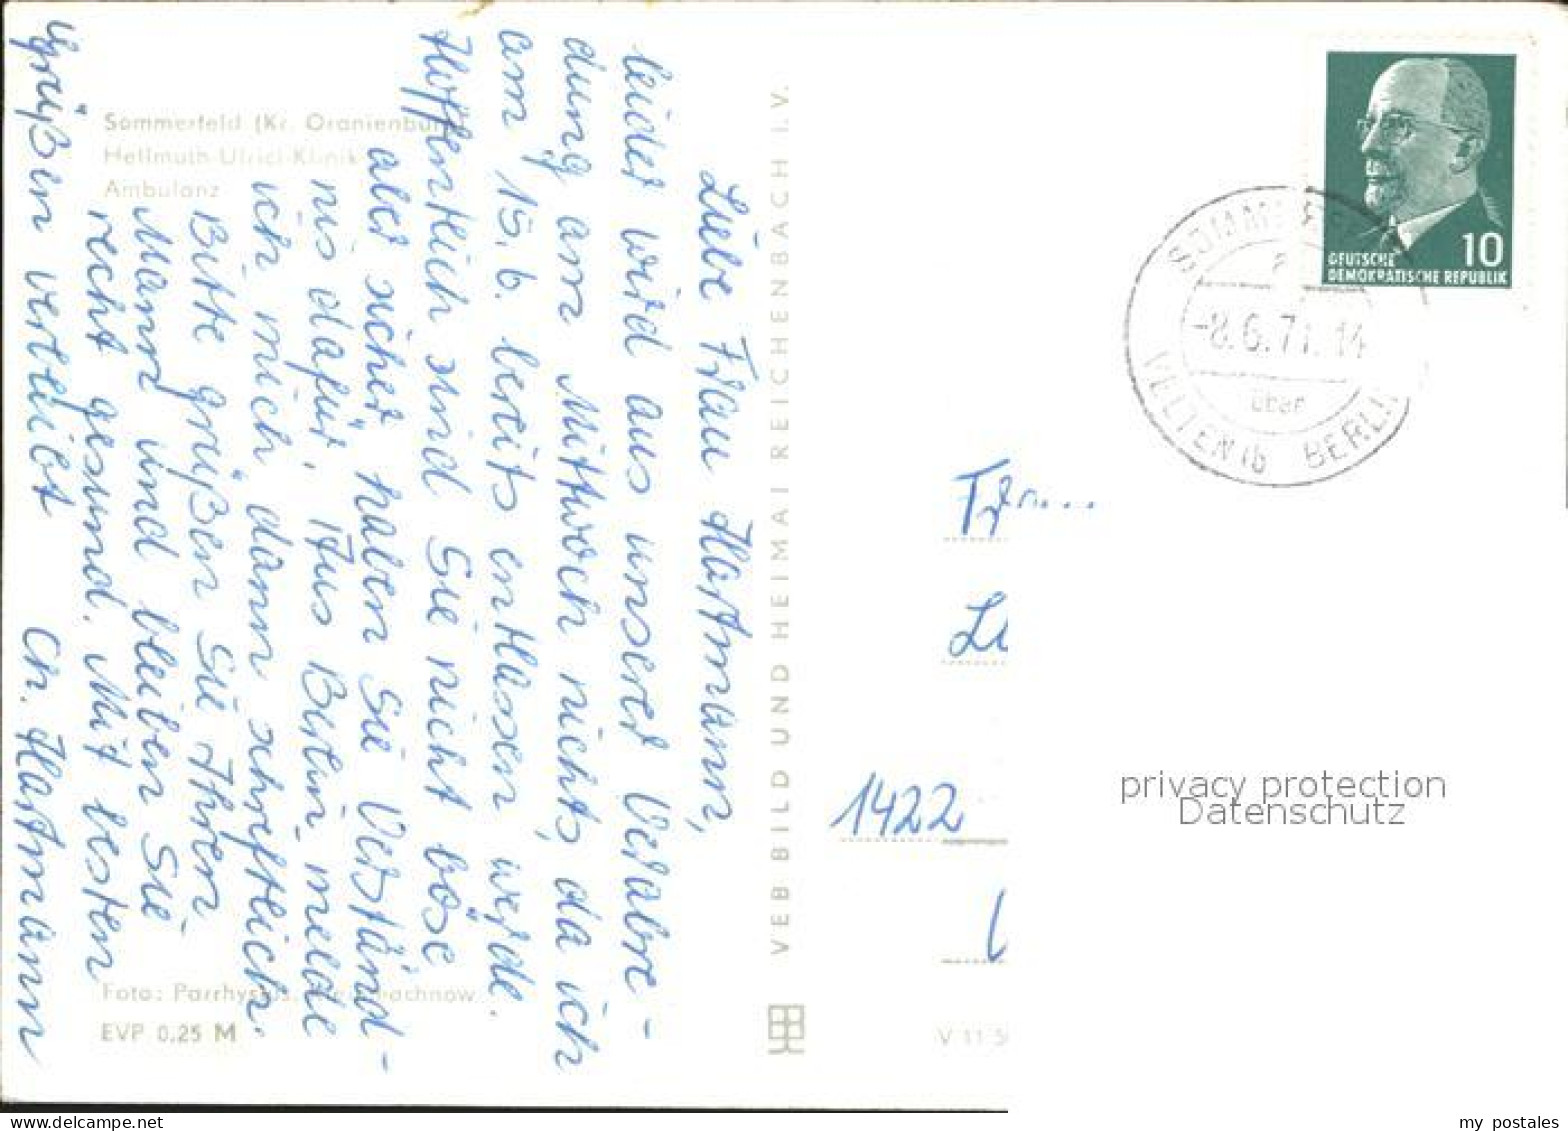 Sommerfeld (Kr. Oranienburg)
Hellmuth-Ulrici-Klinik
Ambulanz
Liebe Frau Hartmann,
leider wird aus unserer Verabre-
dung am Mittwoch nichts, da ich
am 15. 6. bereits entlassen werde.
Hoffentlich sind Sie nicht böse,
aber sicher haben Sie Verständ-
nis dafür. Aus Berlin melde
ich mich dann schriftlich.
Bitte grüßen Sie Ihren
Mann und bleiben Sie
recht gesund. Mit besten
Grüßen verbleibt Ch. Hartmann
Foto:
EVP 0.25 M
VEB BILD UND HEIMAT REICHENBACH I. V.
V 11 5
10
DEUTSCHE
DEMOKRATISCHE REPUBLIK
SOMMERFE
-8.6.71.14
über
VELTEN (b BERLIN
1422
privacy protection
Datenschutz
delcampe.net
my_postales